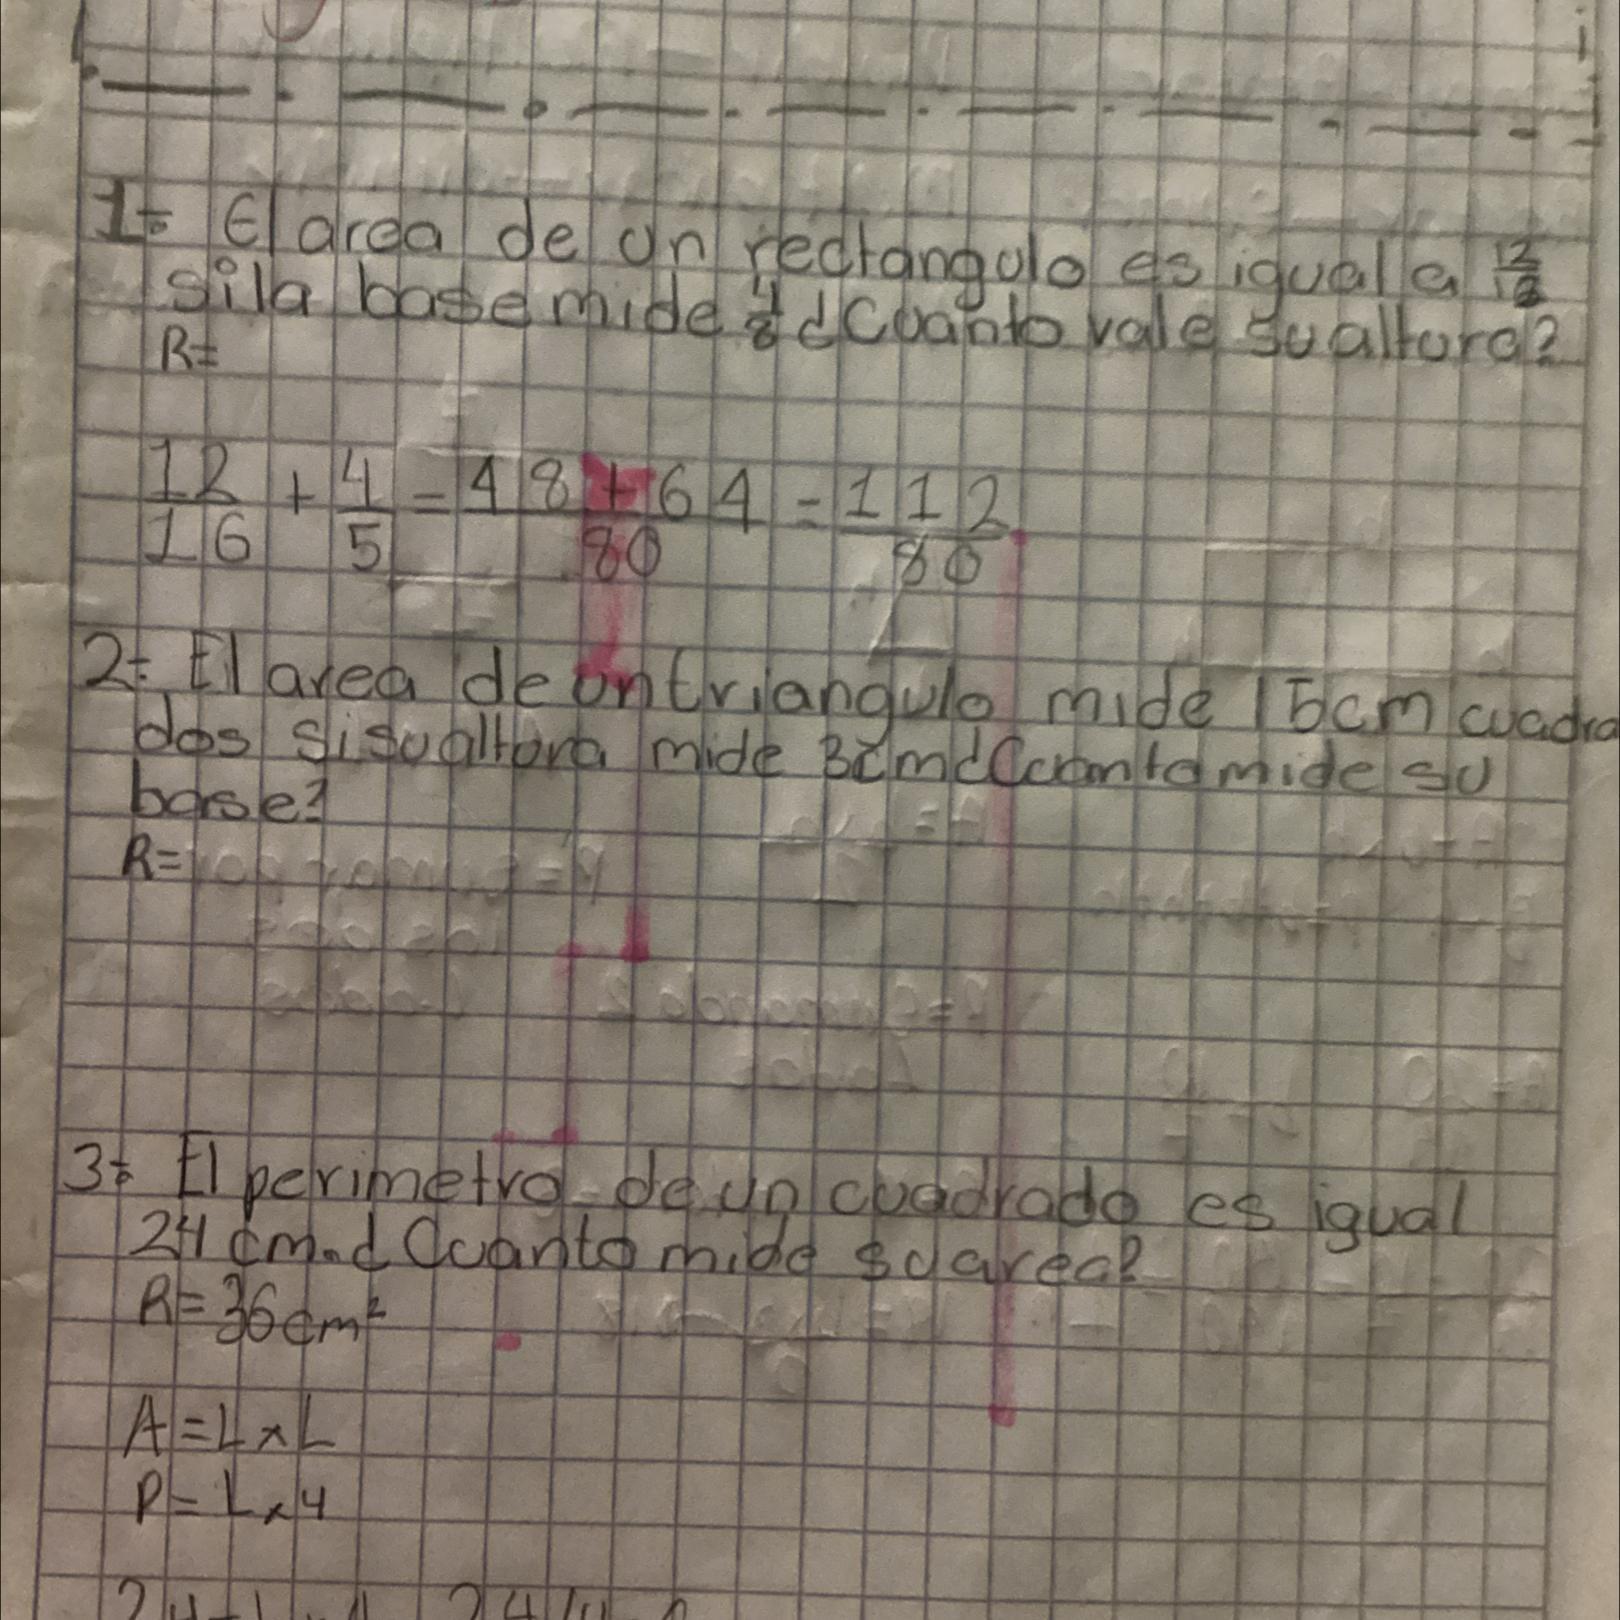 1= El area de un rectangulo es igual a
si la base mide 4/8 ¿Cuanto vale su altura?
R=
12/16 + 4/5 = 48+64/80 = 112/80
2= El area de un triangulo mide 15cm cuadra
dos si su altura mide 3cm ¿Cuanto mide su
base?
R=
3= El perimetro de un cuadrado es igual
24 cm. ¿Cuanto mide su area?
R= 36cm²
A=LxL
P=Lx4